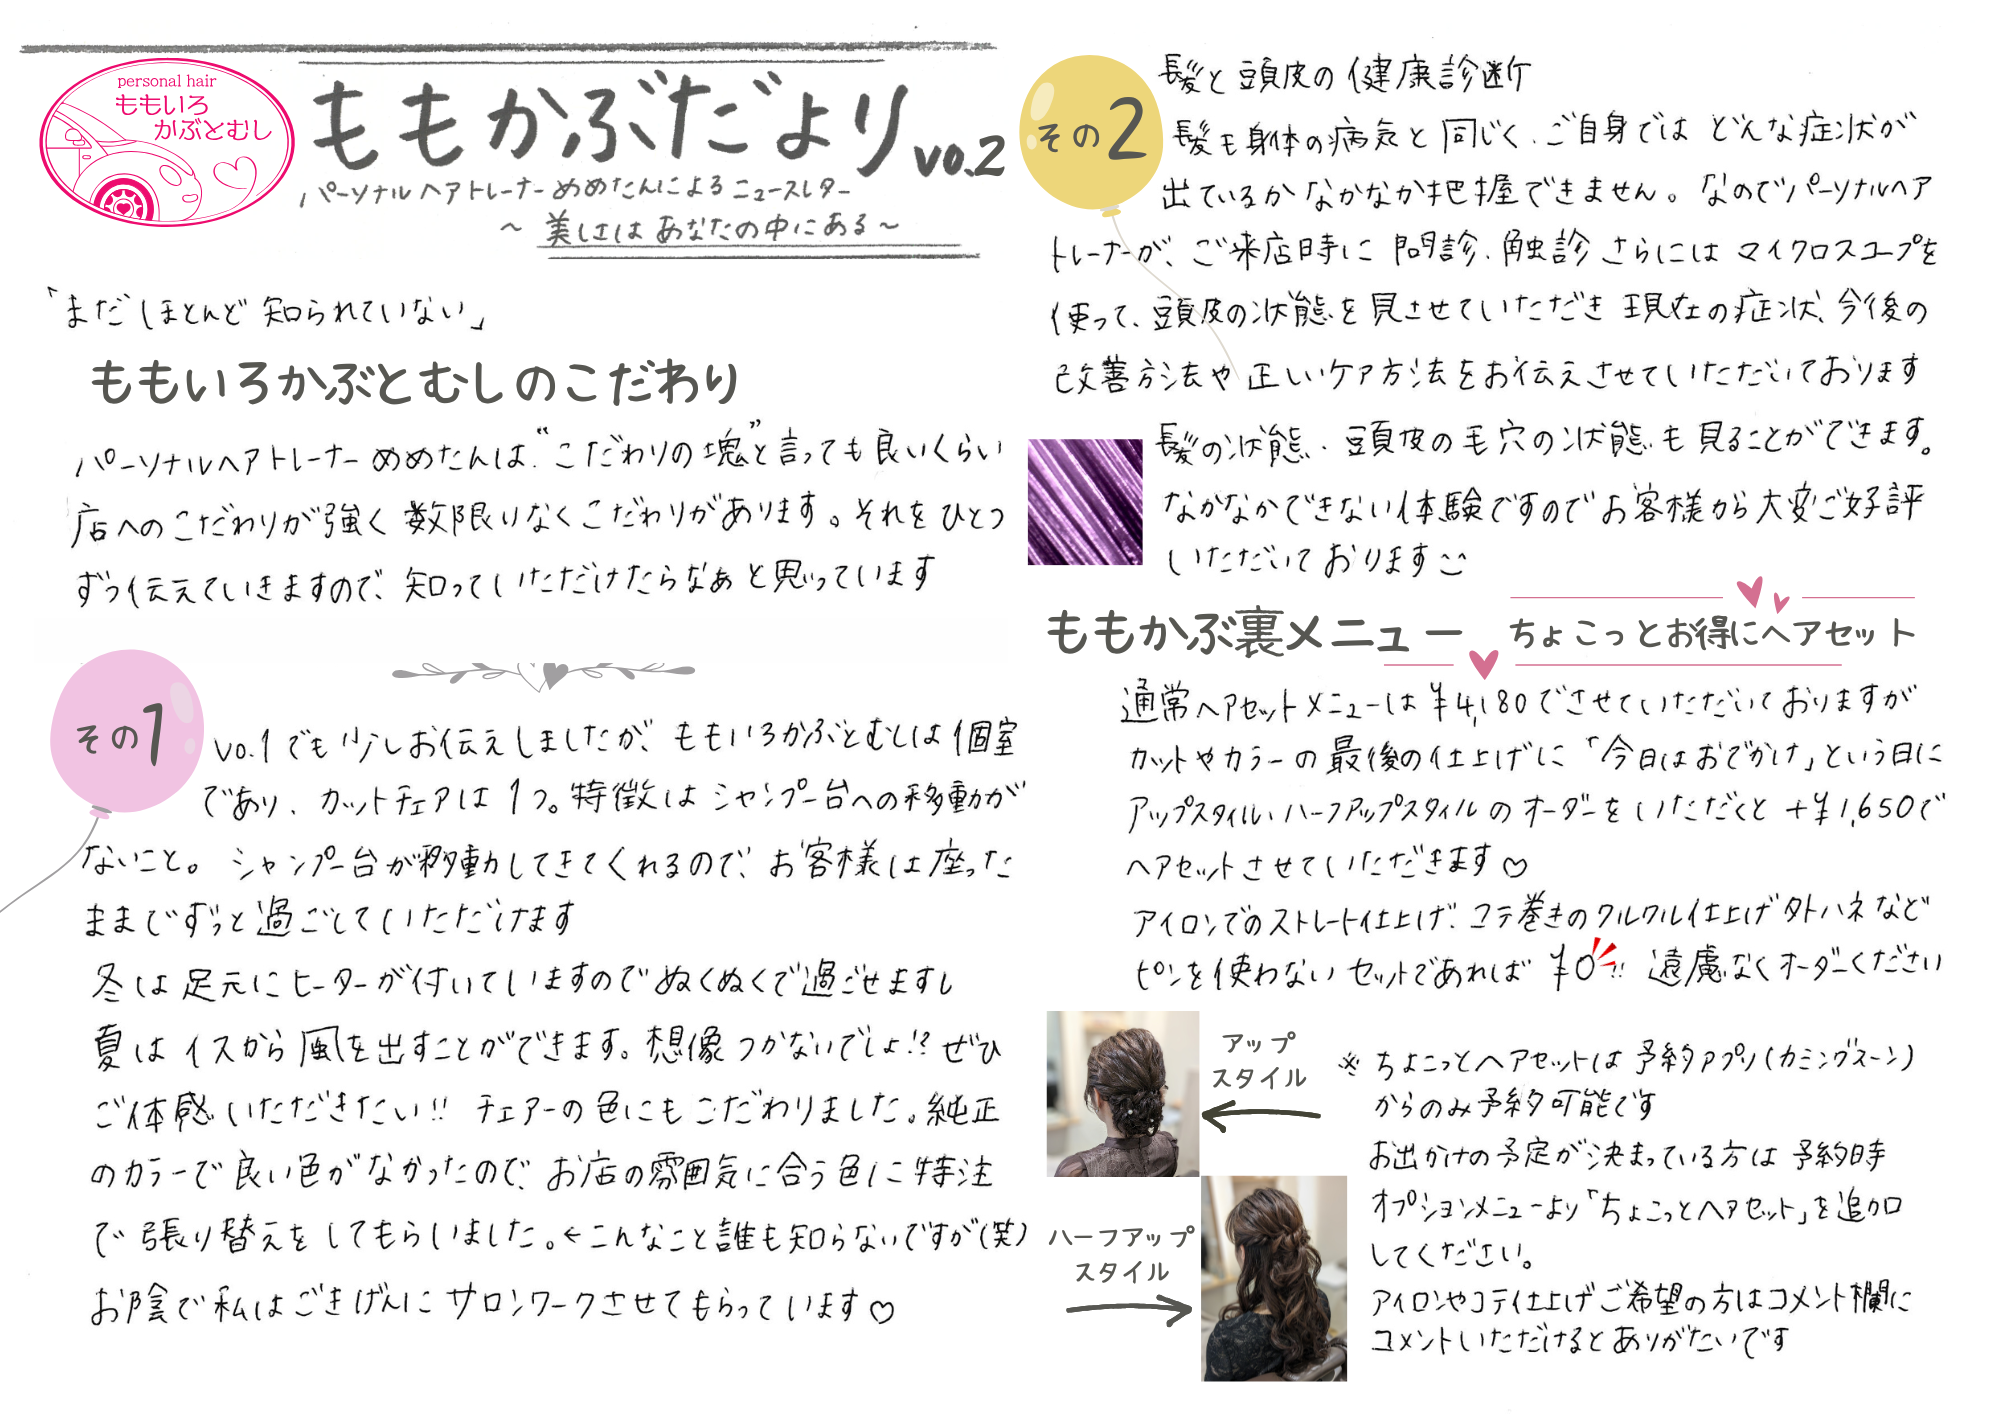 personal hair
ももいろ
かぶとむし
ももかぶだより vo.2
パーソナルヘアトレーナーめめたんによるニュースレター
～ 美しさは あなたの中にある～
「まだほとんど知られていない」
ももいろかぶとむしのこだわり
パーソナルヘアトレーナー めめたんは、“こだわりの塊”と言っても良いくらい
店へのこだわりが強く 数限りなくこだわりがあります。それをひとつ
ずつ伝えていきますので、知っていただけたらなぁと思っています
その1
vo.1でも少しお伝えしましたが、ももいろかぶとむしは個室
であり、カットチェアは1つ。特徴はシャンプー台への移動が
ないこと。シャンプー台が移動してきてくれるので、お客様は座った
ままでずっと過ごしていただけます
冬は足元にヒーターが付いていますのでぬくぬくで過ごせますし
夏はイスから風を出すことができます。想像つかないでしょ!? ぜひ
ご体感いただきたい!! チェアーの色にもこだわりました。純正
のカラーで良い色がなかったので、お店の雰囲気に合う色に特注
で張り替えをしてもらいました。←こんなこと誰も知らないですが(笑)
お陰で私はごきげんにサロンワークさせてもらっています♡
その2
髪と頭皮の健康診断
髪も身体の病気と同じく、ご自身ではどんな症状が
出ているかなかなか把握できません。なのでパーソナルヘア
トレーナーが、ご来店時に問診、触診さらにはマイクロスコープを
使って、頭皮の状態を見させていただき現在の症状、今後の
改善方法や正しいケア方法をお伝えさせていただいております
髪の状態、頭皮の毛穴の状態も見ることができます。
なかなかできない体験ですのでお客様から大変ご好評
いただいております
ももかぶ裏メニュー ちょこっとお得にヘアセット
通常ヘアセットメニューは¥4,180でさせていただいておりますが
カットやカラーの最後の仕上げに「今日はおでかけ」という日に
アップスタイル、ハーフアップスタイルのオーダーをいただくと+¥1,650で
ヘアセットさせていただきます♡
アイロンでのストレート仕上げ、コテ巻きのクルクル仕上げ外ハネなど
ピンを使わないセットであれば ¥0!! 遠慮なくオーダーください
アップ
スタイル
※ ちょこっとヘアセットは予約アプリ(カミングスーン)
からのみ予約可能です
お出かけの予定が決まっている方は予約時
オプションメニューより「ちょこっとヘアセット」を追加
してください。
アイロンやコテ仕上げご希望の方はコメント欄に
コメントいただけるとありがたいです
ハーフアップ
スタイル